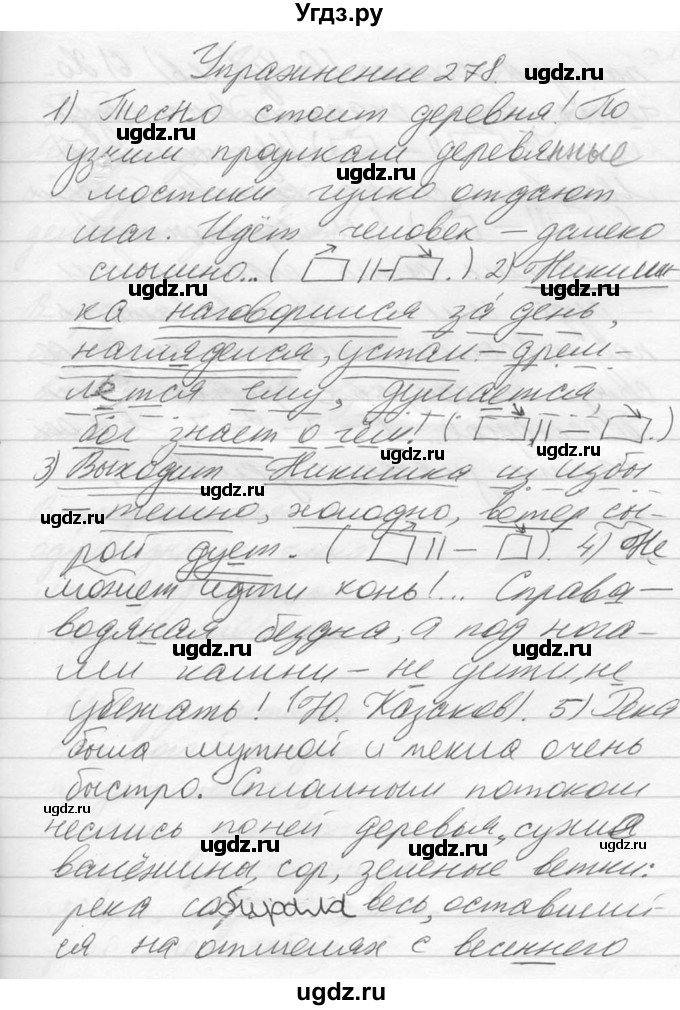 Угдз.ру
Упражнение 278.
1) Тесно стоит деревня! По
узким проулкам деревянные
мостики гулко отдают
шаг. Идёт человек – далеко
слышно... ( || – .) 2) Никиш-
ка наговорился за день,
нагляделся, устал – дрем-
лется ему, думается,
бог знает о чём! ( || – .)
3) Выходит Никишка из избы
– темно, холодно, ветер сы-
рой дует. ( || – ). 4) Не
может идти конь!... Справа –
водяная бездна, а под нога-
ми камни – не уйти, не
убежать! (Ю. Казаков). 5) Река
была мутной и текла очень
быстро. Сплошным потоком
неслись по ней деревья, сухие
валежины, сор, зелёные ветки:
река собирала весь, оставший-
ся на отмелях с весеннего
ugdz.ru